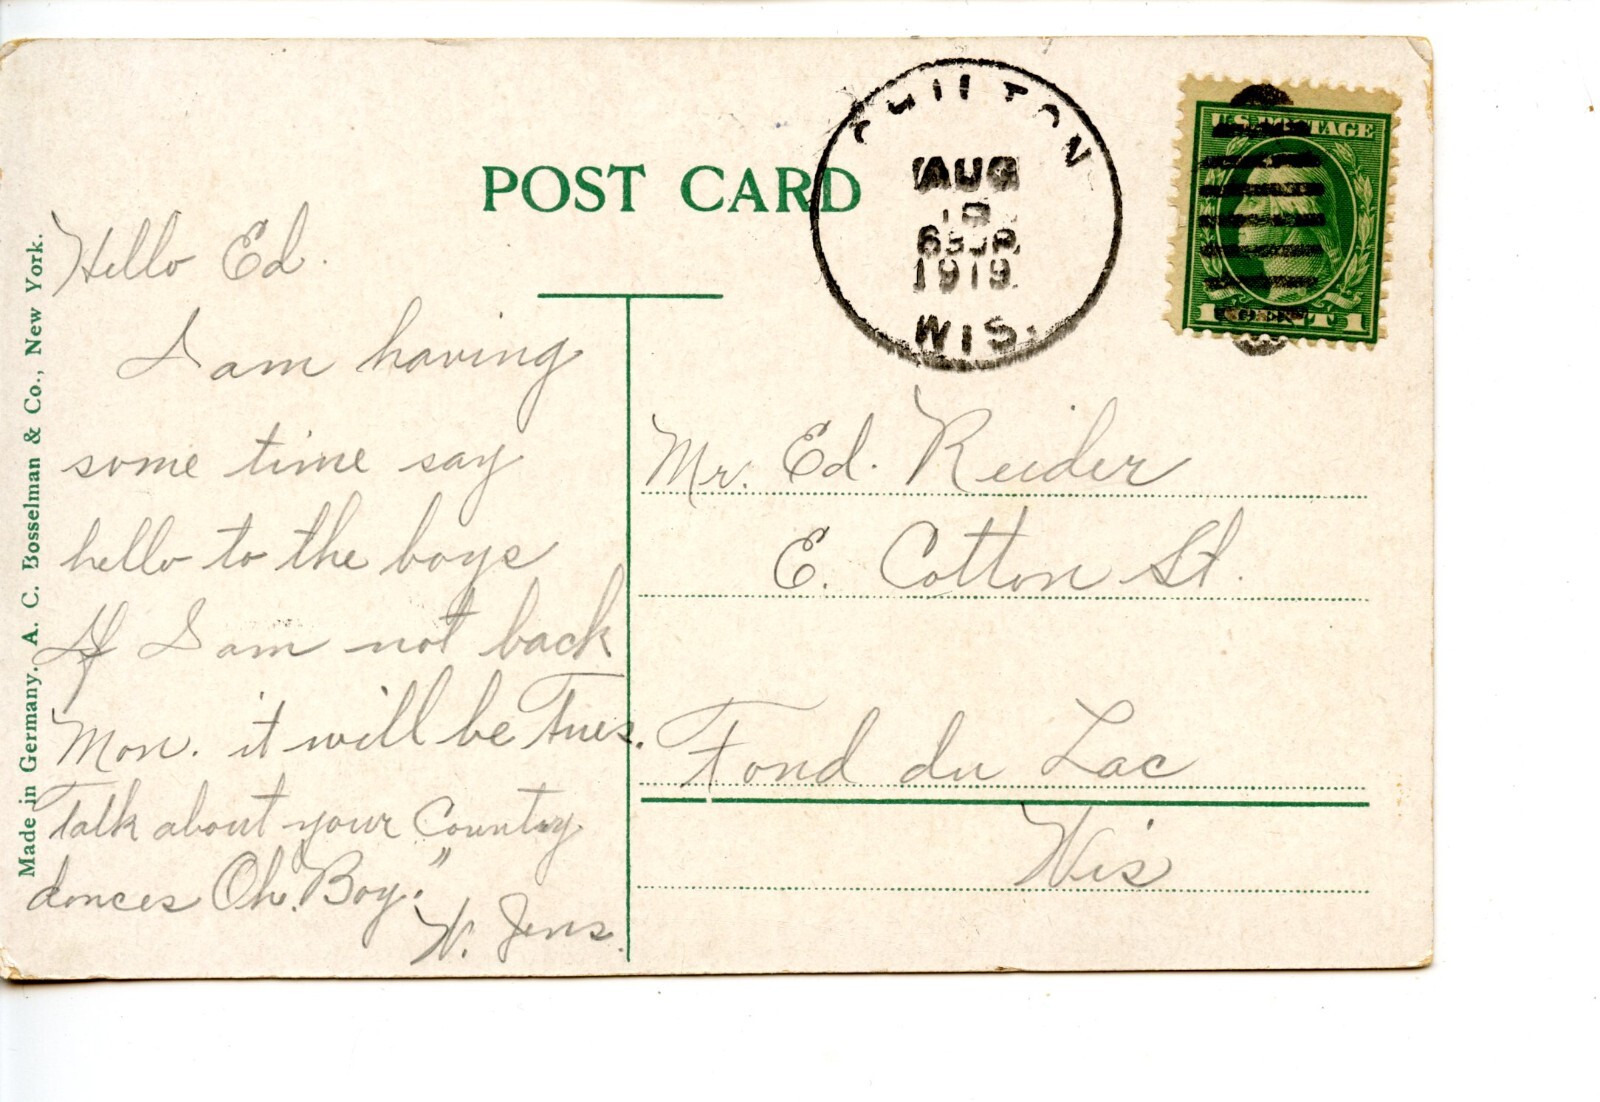 POST CARD
CHILTON
AUG
1919
WIS.
U.S. POSTAGE
1 CENT 1
Made in Germany. A. C. Bosselman & Co., New York.
Hello Ed.
I am having
some time say
hello to the boys
If I am not back
Mon. it will be Tues.
Talk about your Country
dances Oh. Boy."
W. Jens.
Mr. Ed. Reider
E. Cotton St.
Fond du Lac
Wis